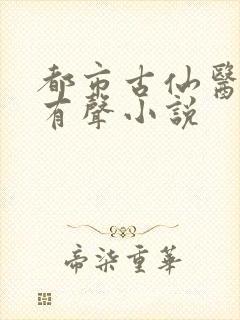 都市古仙醫
有聲小説
帝柒重華